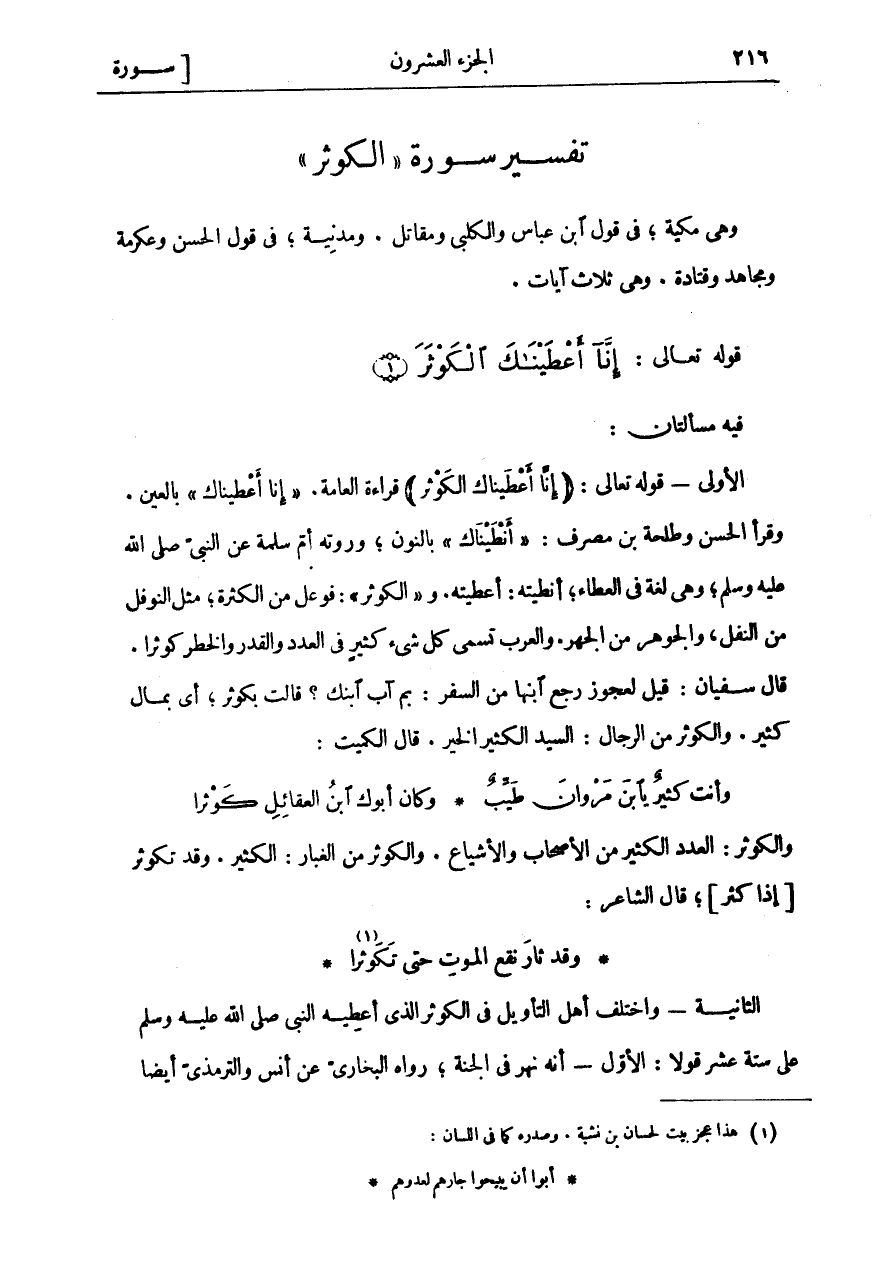 ٢١٦ الجزء العشرون [ سـورة
تفسير سورة « الكوثر »
وهى مكية ؛ فى قول آبن عباس والكلبى ومقاتل . ومدنِية ؛ فى قول الحسن وعكرمة
ومجاهد وقتادة . وهى ثلاث آيات .
قوله تعالى : إِنَّآ أَعْطَيْنَـٰكَ ٱلْكَوْثَرَ ﴿١﴾
فيه مسألتان :
الأولى — قوله تعالى : ﴿ إِنَّا أَعْطَيناك الكَوْثر ﴾ قراءة العامة . « إنا أَعْطيناك » بالعين .
وقرأ الحسن وطلحة بن مصرف : « أَنْطَيْنَاك » بالنون ؛ وروته أمّ سلمة عن النبىّ صلى الله
عليه وسلم ؛ وهى لغة فى العطاء ؛ أنطيته : أعطيته . و « الكوثر » : فوعل من الكثرة ؛ مثل النوفل
من النفل ، والجوهر من الجهر . والعرب تسمى كل شىء كثيرٍ فى العدد والقدر والخطر كوثرا .
قال سفيان : قيل لعجوز رجع آبنها من السفر : بم آب آبنك ؟ قالت بكوثر ؛ أى بمال
كثير . والكوثر من الرجال : السيد الكثير الخير . قال الكميت :
وأنت كثيرٌ يٱبنَ مَرْوانَ طَيِّبٌ * وكان أبوك آبنُ العقائِلِ كَوْثرا
والكوثر : العدد الكثير من الأصحاب والأشياع . والكوثر من الغبار : الكثير . وقد تكوثر
[ إذا كثر ] ؛ قال الشاعر :
* وقد ثارَ نقع الموتِ حتى تَكَوثرا (١) *
الثانية — واختلف أهل التأويل فى الكوثر الذى أعطِيه النبى صلى الله عليه وسلم
على ستة عشر قولا : الأوّل — أنه نهر فى الجنة ؛ رواه البخارىّ عن أنس والترمذىّ أيضا
(١) هذا عجز بيت لحسان بن نشبة . وصدره كما فى اللسان :
* أبوا أن يبيحوا جارهم لعدوهم *